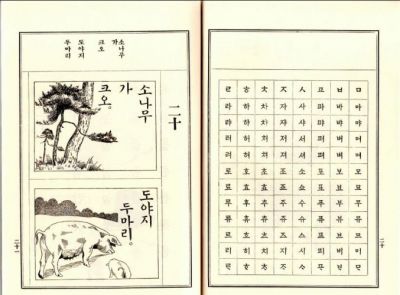 ㅁ 마 먀 머 며 모 묘 무 뮤 므 미
ㅂ 바 뱌 버 벼 보 뵤 부 뷰 브 비
ㅍ 파 퍄 퍼 펴 포 표 푸 퓨 프 피
ㅅ 사 샤 서 셔 소 쇼 수 슈 스 시
ㅈ 자 쟈 저 져 조 죠 주 쥬 즈 지
ㅊ 차 챠 처 쳐 초 쵸 추 츄 츠 치
ㅎ 하 햐 허 혀 호 효 후 휴 흐 히
ㄹ 라 랴 러 려 로 료 루 류 르 리
二十
二十
소나무
가
크오。
도야지
두마리。
소나무
가
크오
도야지
두마리
二十一